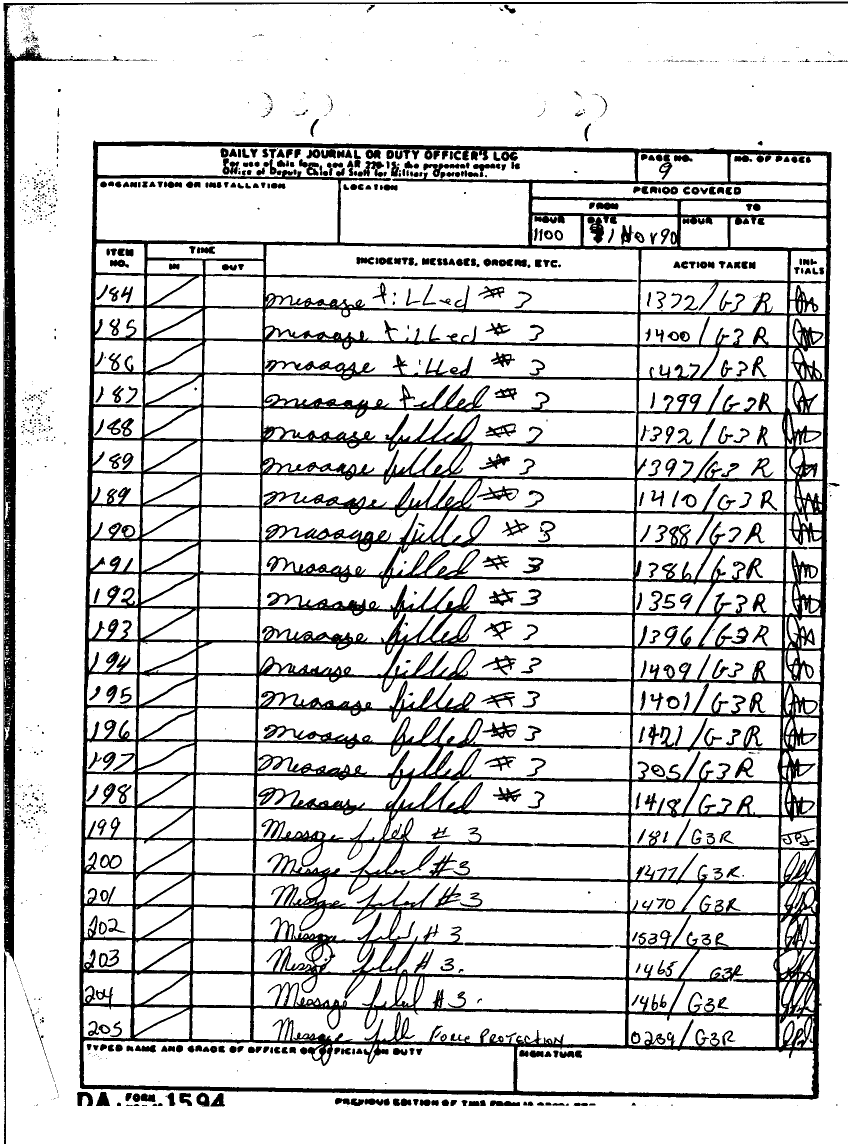 DAILY STAFF JOURNAL OR DUTY OFFICER'S LOG
For use of this form, see AR 220-15; the proponent agency is
Office of Deputy Chief of Staff for Military Operations.
PAGE NO.
9
NO. OF PAGES
ORGANIZATION OR INSTALLATION
LOCATION
PERIOD COVERED
FROM
TO
HOUR
DATE
HOUR
DATE
1100
1 Nov 90
ITEM NO.
TIME
IN
OUT
INCIDENTS, MESSAGES, ORDERS, ETC.
ACTION TAKEN
INI-TIALS
184 message filled # 3 1372/G3R
185 message filled # 3 1400/G3R
186 message filled # 3 1427/G3R
187 message filled # 3 1399/G3R
188 message filled # 3 1392/G3R
189 message filled # 3 1397/G3R
189 message filled # 3 1410/G3R
190 message filled # 3 1388/G3R
191 message filled # 3 1386/G3R
192 message filled # 3 1359/G3R
193 message filled # 3 1396/G3R
194 message filled # 3 1409/G3R
195 message filled # 3 1401/G3R
196 message filled # 3 1421/G3R
197 message filled # 3 305/G3R
198 message filled # 3 1418/G3R.
199 Message filed # 3 181/G3R JPJ
200 Message filed #3 1477/G3R.
201 Message filed #3 1470/G3R
202 Message filed # 3 1539/G3R
203 Message filed #3. 1465/G3R
204 Message filed #3. 1466/G3R
205 Message FORCE PROTECTION 0289/G3R
TYPED NAME AND GRADE OF OFFICER OR OFFICIAL ON DUTY
SIGNATURE
DA FORM 1594
PREVIOUS EDITION OF THIS FORM IS OBSOLETE